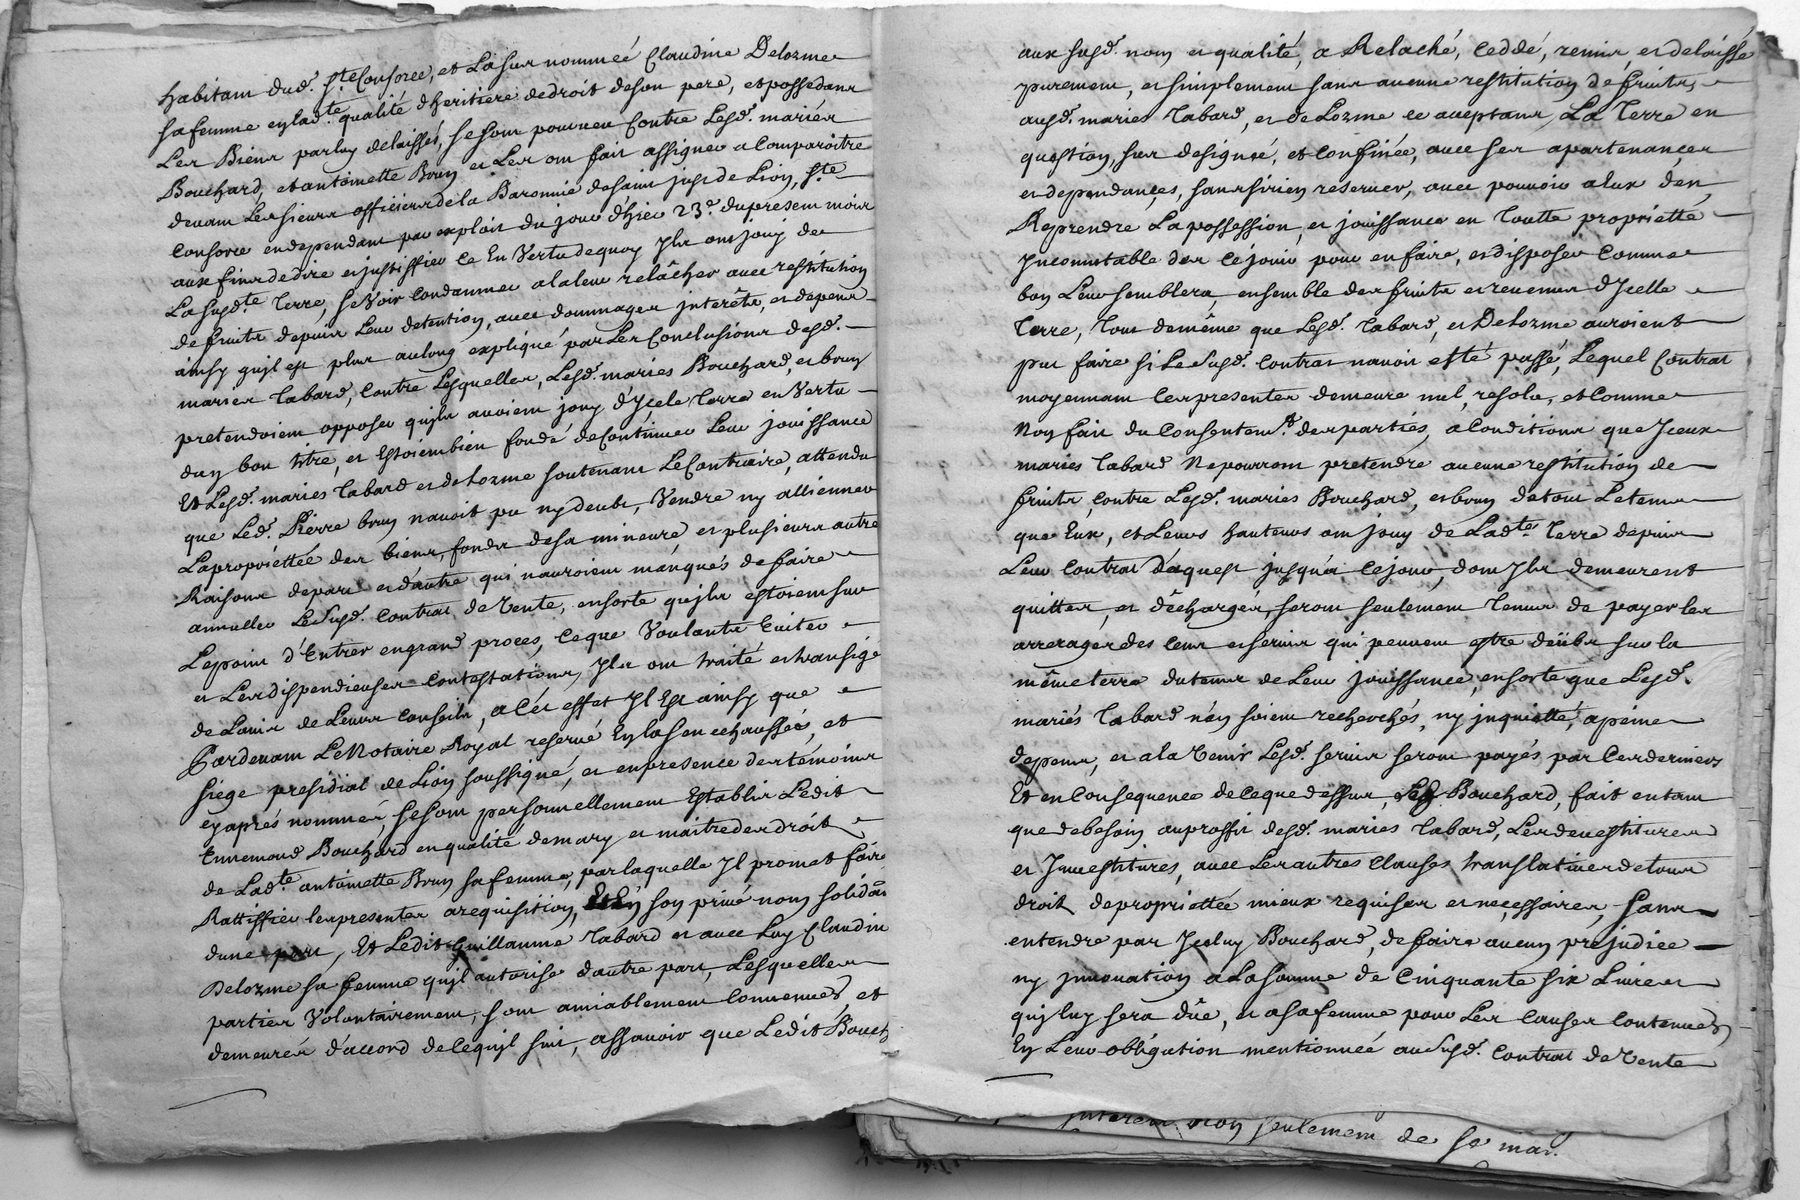 habitant dud. Ste Consorce, et La sus nommeé Claudine Delozme
sa femme en lad.te qualité d'heritiere de droit de son pere, et possedant
Les Biens par luy delaissés, se sont pourveu Contre Lesd. mariés
Bouchard, et antoinette Brun et Les ont fait assigner a Comparoitre
devant Les sieurs officiers de la Baronnie de saint just de Lion, Ste
Consorce en dependant par exploit du jour d'hier 23e du present mois
aux fins de dire et justiffier Ce En Vertu de quoy Ils ont jouy de
La susd.te Terre, se Voir Condamner a la leur relâcher avec restitution
de fruits depuis Leur detention, avec dommages interêts, et depens
ainsy qu'il est plus au long expliqué par Les Conclusions desd.
mariés Tabard, Contre Lesquelles, Lesd. mariés Bouchard, et brun
pretendoient opposer qu'ils avoient jouy d'Ycele Terre en Vertu
d'un bon titre, et Estoient bien fondé de Continuer Leur jouissance
Et Lesd. mariés Tabard et deLozme soutenant Le Contraire, attendu
que Led. Pierre brun n'avoit pu ny deub, Vendre ny allienner
La propriéttée des biens, fonds de sa mineure et plusieurs autre
Raisons de part et d'autre qui n'auroient mánqués de faire
annuller Le susd. Contrat de Vente, ensorte qu'ils estoient sur
Le point d'Entrer en grand proces, Ce que Voulants Eviter
et Les dispendieuses Contestations, Ils ont traité et transigé
de L'avis de Leurs Conseils, a Cét effet Il Est ainsy que
Pardevant Le Notaire Royal reservé En la senechaussée, et
siege presidial de Lion soussigné, et en presence des témoins
cy aprés nommés, se sont personnellement Establis Ledit
Ennemond Bouchard en qualité de mary et maitre des droits
de Lad.te antoinette Brun sa femme, par laquelle Il promet faire
Rattiffier les presentes a requisition, Et En son privé nom solidāt
d'une part, Et Ledit Guillaume Tabard et avec Luy Claudin
Delozme sa femme qu'il autorise d'autre part, Lesquelles
parties Volontairement, sont amiablement Convenues, et
demeurés d'accord de Ce qu'il suit, assavoir que Ledit Bouch
aux susd. nom et qualité, a Relaché, Ceddé, remis, et delaissé
purement, et simplement sans aucune restitution de fruits
ausd. mariés Tabard, et deLozme ce aceptans, La Terre en
question, sus designeé, et Confineé, avec ses apartenances
et dependances, sans s'i rien reserver, avec pouvoir a Eux d'en
Reprendre La possession, et jouissance en Toutte propriettée
Incomutable des Ce jour pour en faire, et disposer Comme
bon Leur semblera, ensemble des fruits et revenus d'Icelle
Terre, Tout de même que Lesd. Tabard, et DeLozme auroient
put faire si Le susd. Contrat n'avoit esté passé, Lequel Contrat
moyennant Ces presentes demeure nul, resolu, et Comme
Non fait du Consentem.t des partiés, a Conditions que Iceux
mariés Tabard Ne pourront pretendre aucune restitution de
fruits, contre Lesd. mariés Bouchard, et brun de tout Le tems
que Eux, et Leurs hauteurs ont jouy de Lad.te Terre depuis
Leur Contrat d'aquest jusqu'a Ce jour, dont Ils demeurent
quittes, et déchargés, seront seulement Tenus de payer les
arrerages des Cens et servis qui peuvent estre deübs sur la
même terre du tems de Leur jouissance, ensorte que Lesd.
mariés Tabard n'en soient recherchés, ny inquietté, a peine
depens, et a la Venir Lesd. servis seront payés par Ces derniers
Et en Consequence de Ce que dessus, Led. Bouchard, fait en tant
que de besoin au proffit desd. mariés Tabard, Les devestitures
et Investitures, avec Les autres Clauses translatives de tous
droits de propriettée mieux requises et neçessaires, sans
entendre par Iceluy Bouchard, de faire aucun prejudice
ny innovation a La somme de Cinquante six Livres
qu'il luy sera dûe, et a sa femme pour Les Causes Contenues
En Leur obligation mentionneé au susd. Contrat de Vente
non seulement de